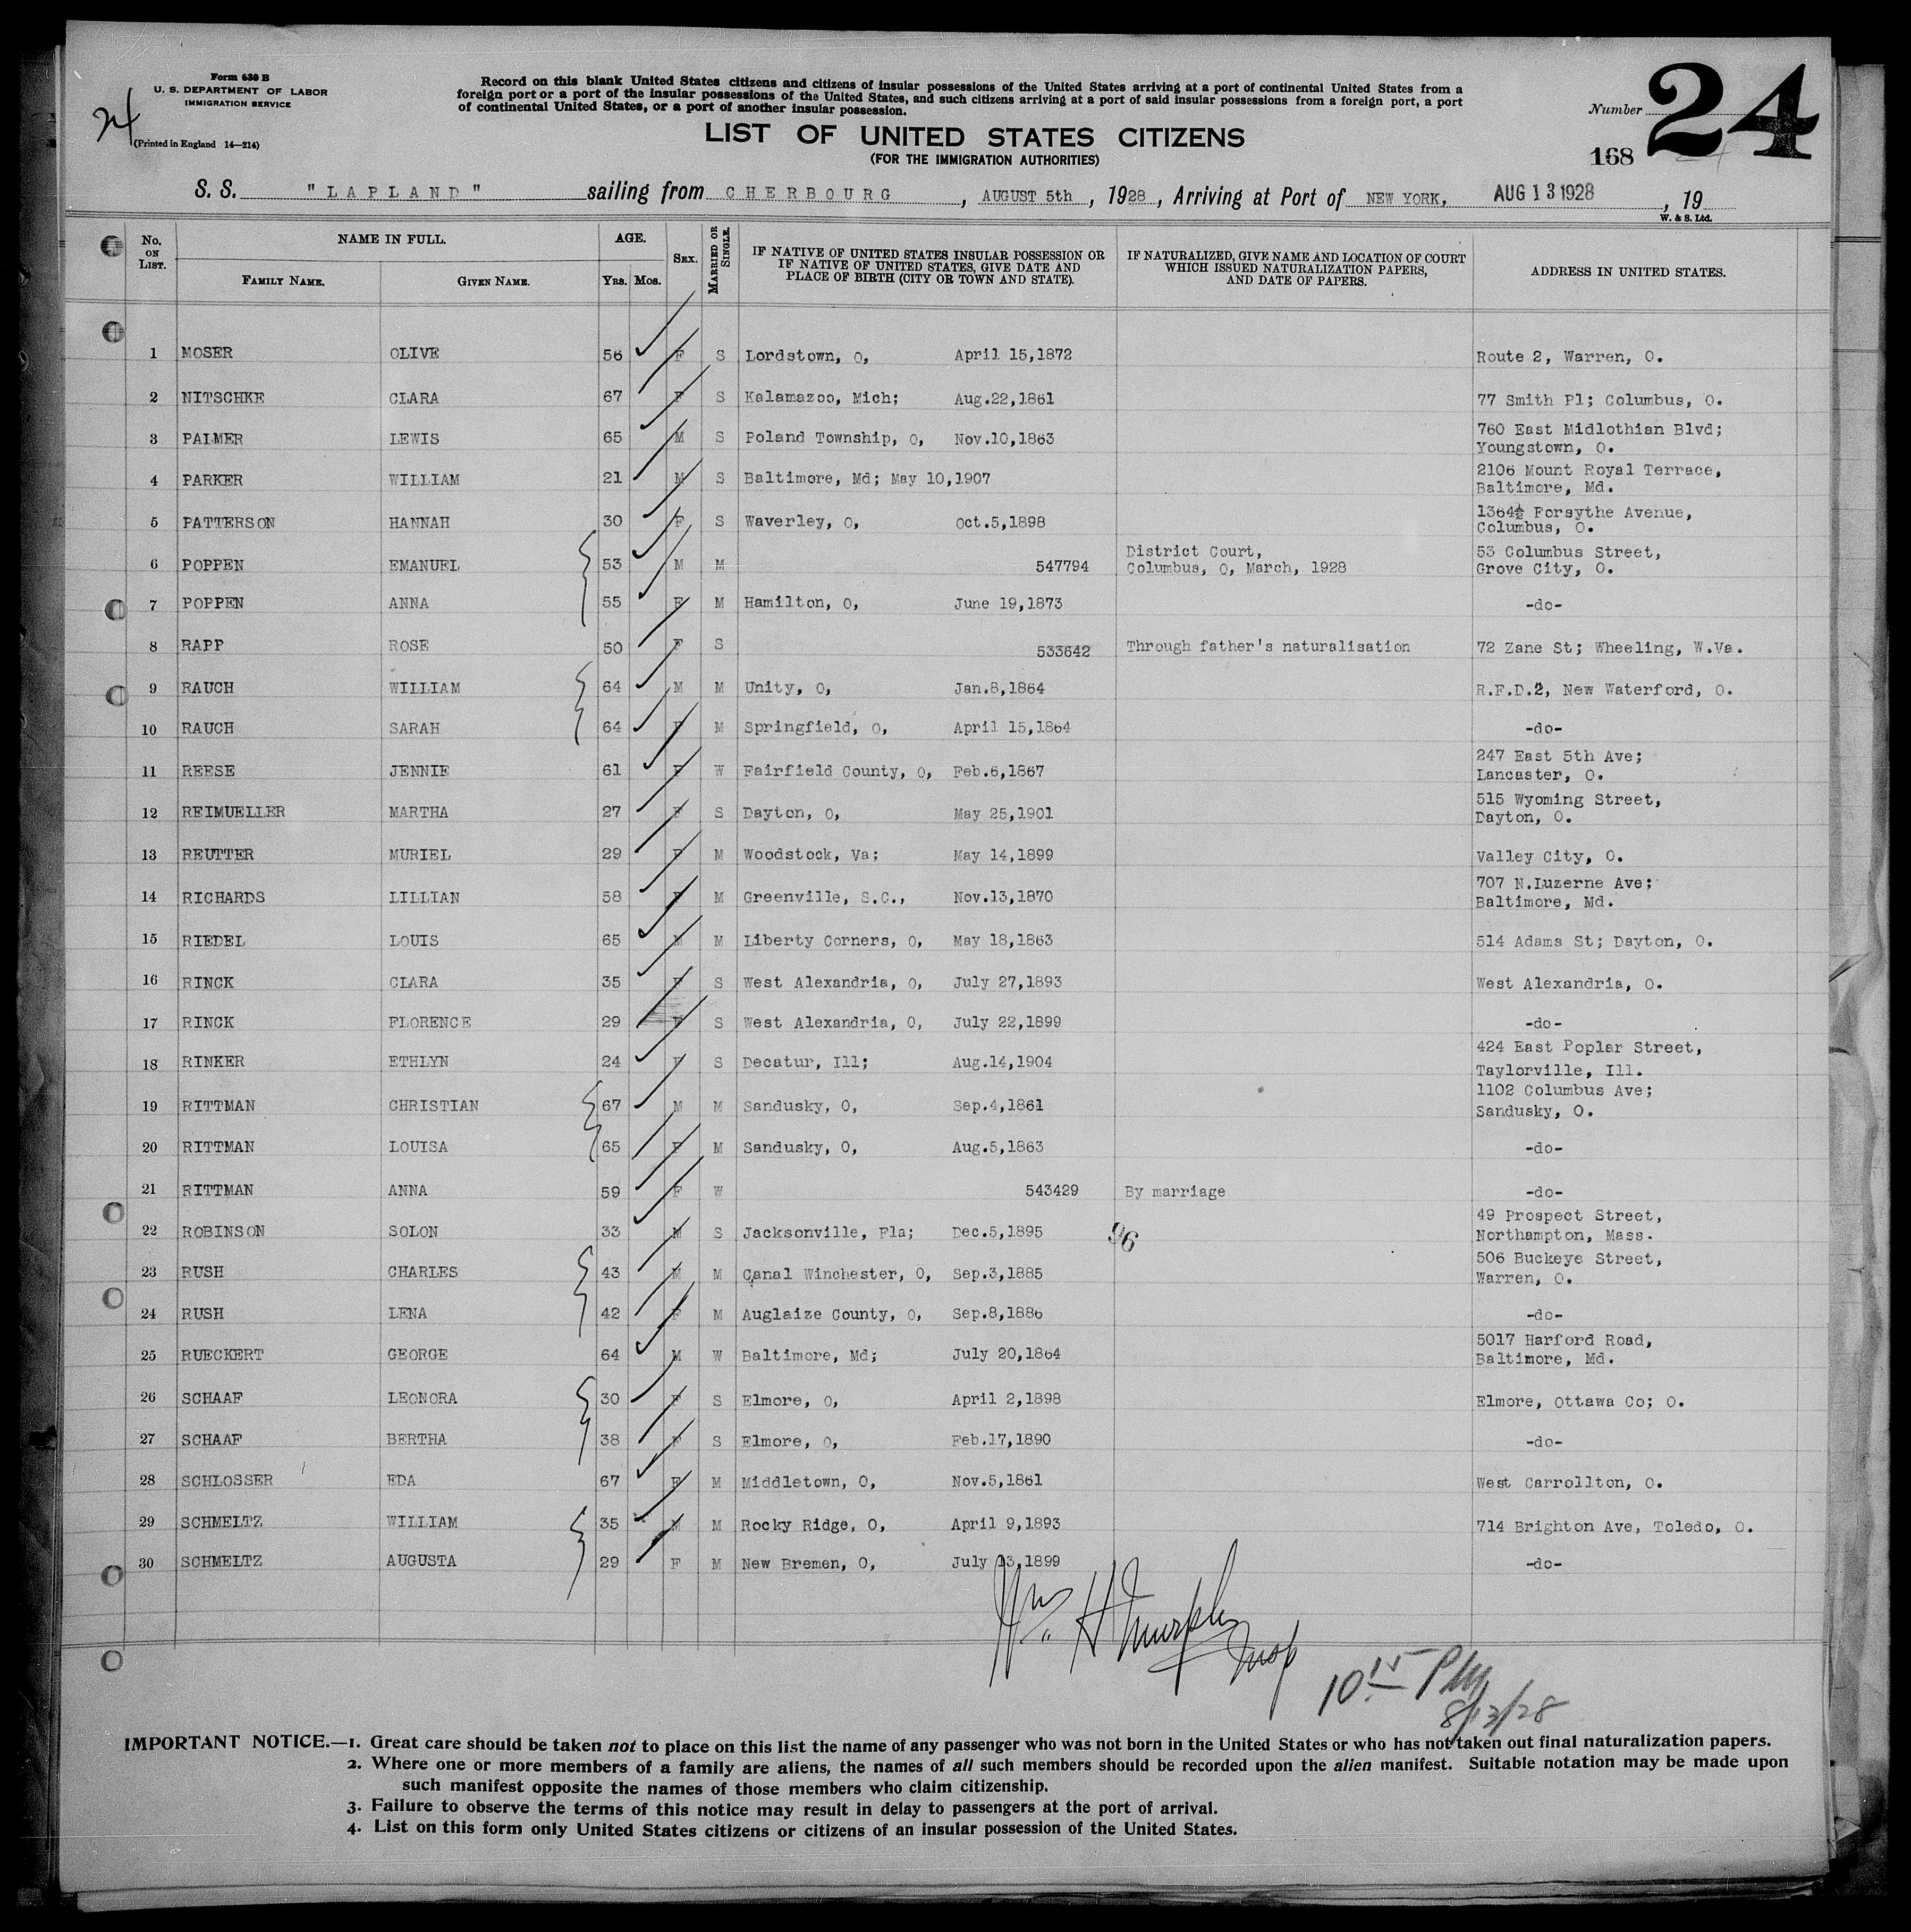 Form 630 B
U. S. DEPARTMENT OF LABOR
IMMIGRATION SERVICE
24
(Printed in England 14—214)
Record on this blank United States citizens and citizens of insular possessions of the United States arriving at a port of continental United States from a
foreign port or a port of the insular possessions of the United States, and such citizens arriving at a port of said insular possessions from a foreign port, a port
of continental United States, or a port of another insular possession.
LIST OF UNITED STATES CITIZENS
(FOR THE IMMIGRATION AUTHORITIES)
Number 24
168
S. S. "LAPLAND" sailing from CHERBOURG, AUGUST 5th, 1928, Arriving at Port of NEW YORK, AUG 13 1928, 19
W. & S. Ltd.
No. ON LIST. NAME IN FULL. FAMILY NAME. GIVEN NAME. AGE. Yrs. Mos. SEX. MARRIED OR SINGLE. IF NATIVE OF UNITED STATES INSULAR POSSESSION OR IF NATIVE OF UNITED STATES, GIVE DATE AND PLACE OF BIRTH (CITY OR TOWN AND STATE). IF NATURALIZED, GIVE NAME AND LOCATION OF COURT WHICH ISSUED NATURALIZATION PAPERS, AND DATE OF PAPERS. ADDRESS IN UNITED STATES.
1 MOSER OLIVE 56 F S Lordstown, O, April 15,1872 Route 2, Warren, O.
2 NITSCHKE CLARA 67 F S Kalamazoo, Mich; Aug.22,1861 77 Smith Pl; Columbus, O.
3 PALMER LEWIS 65 M S Poland Township, O, Nov.10,1863 760 East Midlothian Blvd; Youngstown, O.
4 PARKER WILLIAM 21 M S Baltimore, Md; May 10,1907 2106 Mount Royal Terrace, Baltimore, Md.
5 PATTERSON HANNAH 30 F S Waverley, O, Oct.5,1898 1364½ Forsythe Avenue, Columbus, O.
6 POPPEN EMANUEL 53 M M 547794 District Court, Columbus, O, March, 1928 53 Columbus Street, Grove City, O.
7 POPPEN ANNA 55 F M Hamilton, O, June 19,1873 -do-
8 RAPP ROSE 50 F S 533642 Through father's naturalisation 72 Zane St; Wheeling, W.Va.
9 RAUCH WILLIAM 64 M M Unity, O, Jan.8,1864 R.F.D.2, New Waterford, O.
10 RAUCH SARAH 64 F M Springfield, O, April 15,1864 -do-
11 REESE JENNIE 61 F W Fairfield County, O, Feb.6,1867 247 East 5th Ave; Lancaster, O.
12 REIMUELLER MARTHA 27 F S Dayton, O, May 25,1901 515 Wyoming Street, Dayton, O.
13 REUTTER MURIEL 29 F M Woodstock, Va; May 14,1899 Valley City, O.
14 RICHARDS LILLIAN 58 F M Greenville, S.C., Nov.13,1870 707 N.Luzerne Ave; Baltimore, Md.
15 RIEDEL LOUIS 65 M M Liberty Corners, O, May 18,1863 514 Adams St; Dayton, O.
16 RINCK CLARA 35 F S West Alexandria, O, July 27,1893 West Alexandria, O.
17 RINCK FLORENCE 29 F S West Alexandria, O, July 22,1899 -do-
18 RINKER ETHLYN 24 F S Decatur, Ill; Aug.14,1904 424 East Poplar Street, Taylorville, Ill.
19 RITTMAN CHRISTIAN 67 M M Sandusky, O, Sep.4,1861 1102 Columbus Ave; Sandusky, O.
20 RITTMAN LOUISA 65 F M Sandusky, O, Aug.5,1863 -do-
21 RITTMAN ANNA 59 F W 543429 By marriage -do-
22 ROBINSON SOLON 33 M S Jacksonville, Fla; Dec.5,1895 96 49 Prospect Street, Northampton, Mass.
23 RUSH CHARLES 43 M M Canal Winchester, O, Sep.3,1885 506 Buckeye Street, Warren, O.
24 RUSH LENA 42 F M Auglaize County, O, Sep.8,1886 -do-
25 RUECKERT GEORGE 64 M W Baltimore, Md; July 20,1864 5017 Harford Road, Baltimore, Md.
26 SCHAAF LEONORA 30 F S Elmore, O, April 2,1898 Elmore, Ottawa Co; O.
27 SCHAAF BERTHA 38 F S Elmore, O, Feb.17,1890 -do-
28 SCHLOSSER EDA 67 F M Middletown, O, Nov.5,1861 West Carrollton, O.
29 SCHMELTZ WILLIAM 35 M M Rocky Ridge, O, April 9,1893 714 Brighton Ave, Toledo, O.
30 SCHMELTZ AUGUSTA 29 F M New Bremen, O, July 13,1899 -do-
Wm. H Murphy
Insp
10 15 PM
8/12/28
IMPORTANT NOTICE.—1. Great care should be taken not to place on this list the name of any passenger who was not born in the United States or who has not taken out final naturalization papers.
2. Where one or more members of a family are aliens, the names of all such members should be recorded upon the alien manifest. Suitable notation may be made upon
such manifest opposite the names of those members who claim citizenship.
3. Failure to observe the terms of this notice may result in delay to passengers at the port of arrival.
4. List on this form only United States citizens or citizens of an insular possession of the United States.